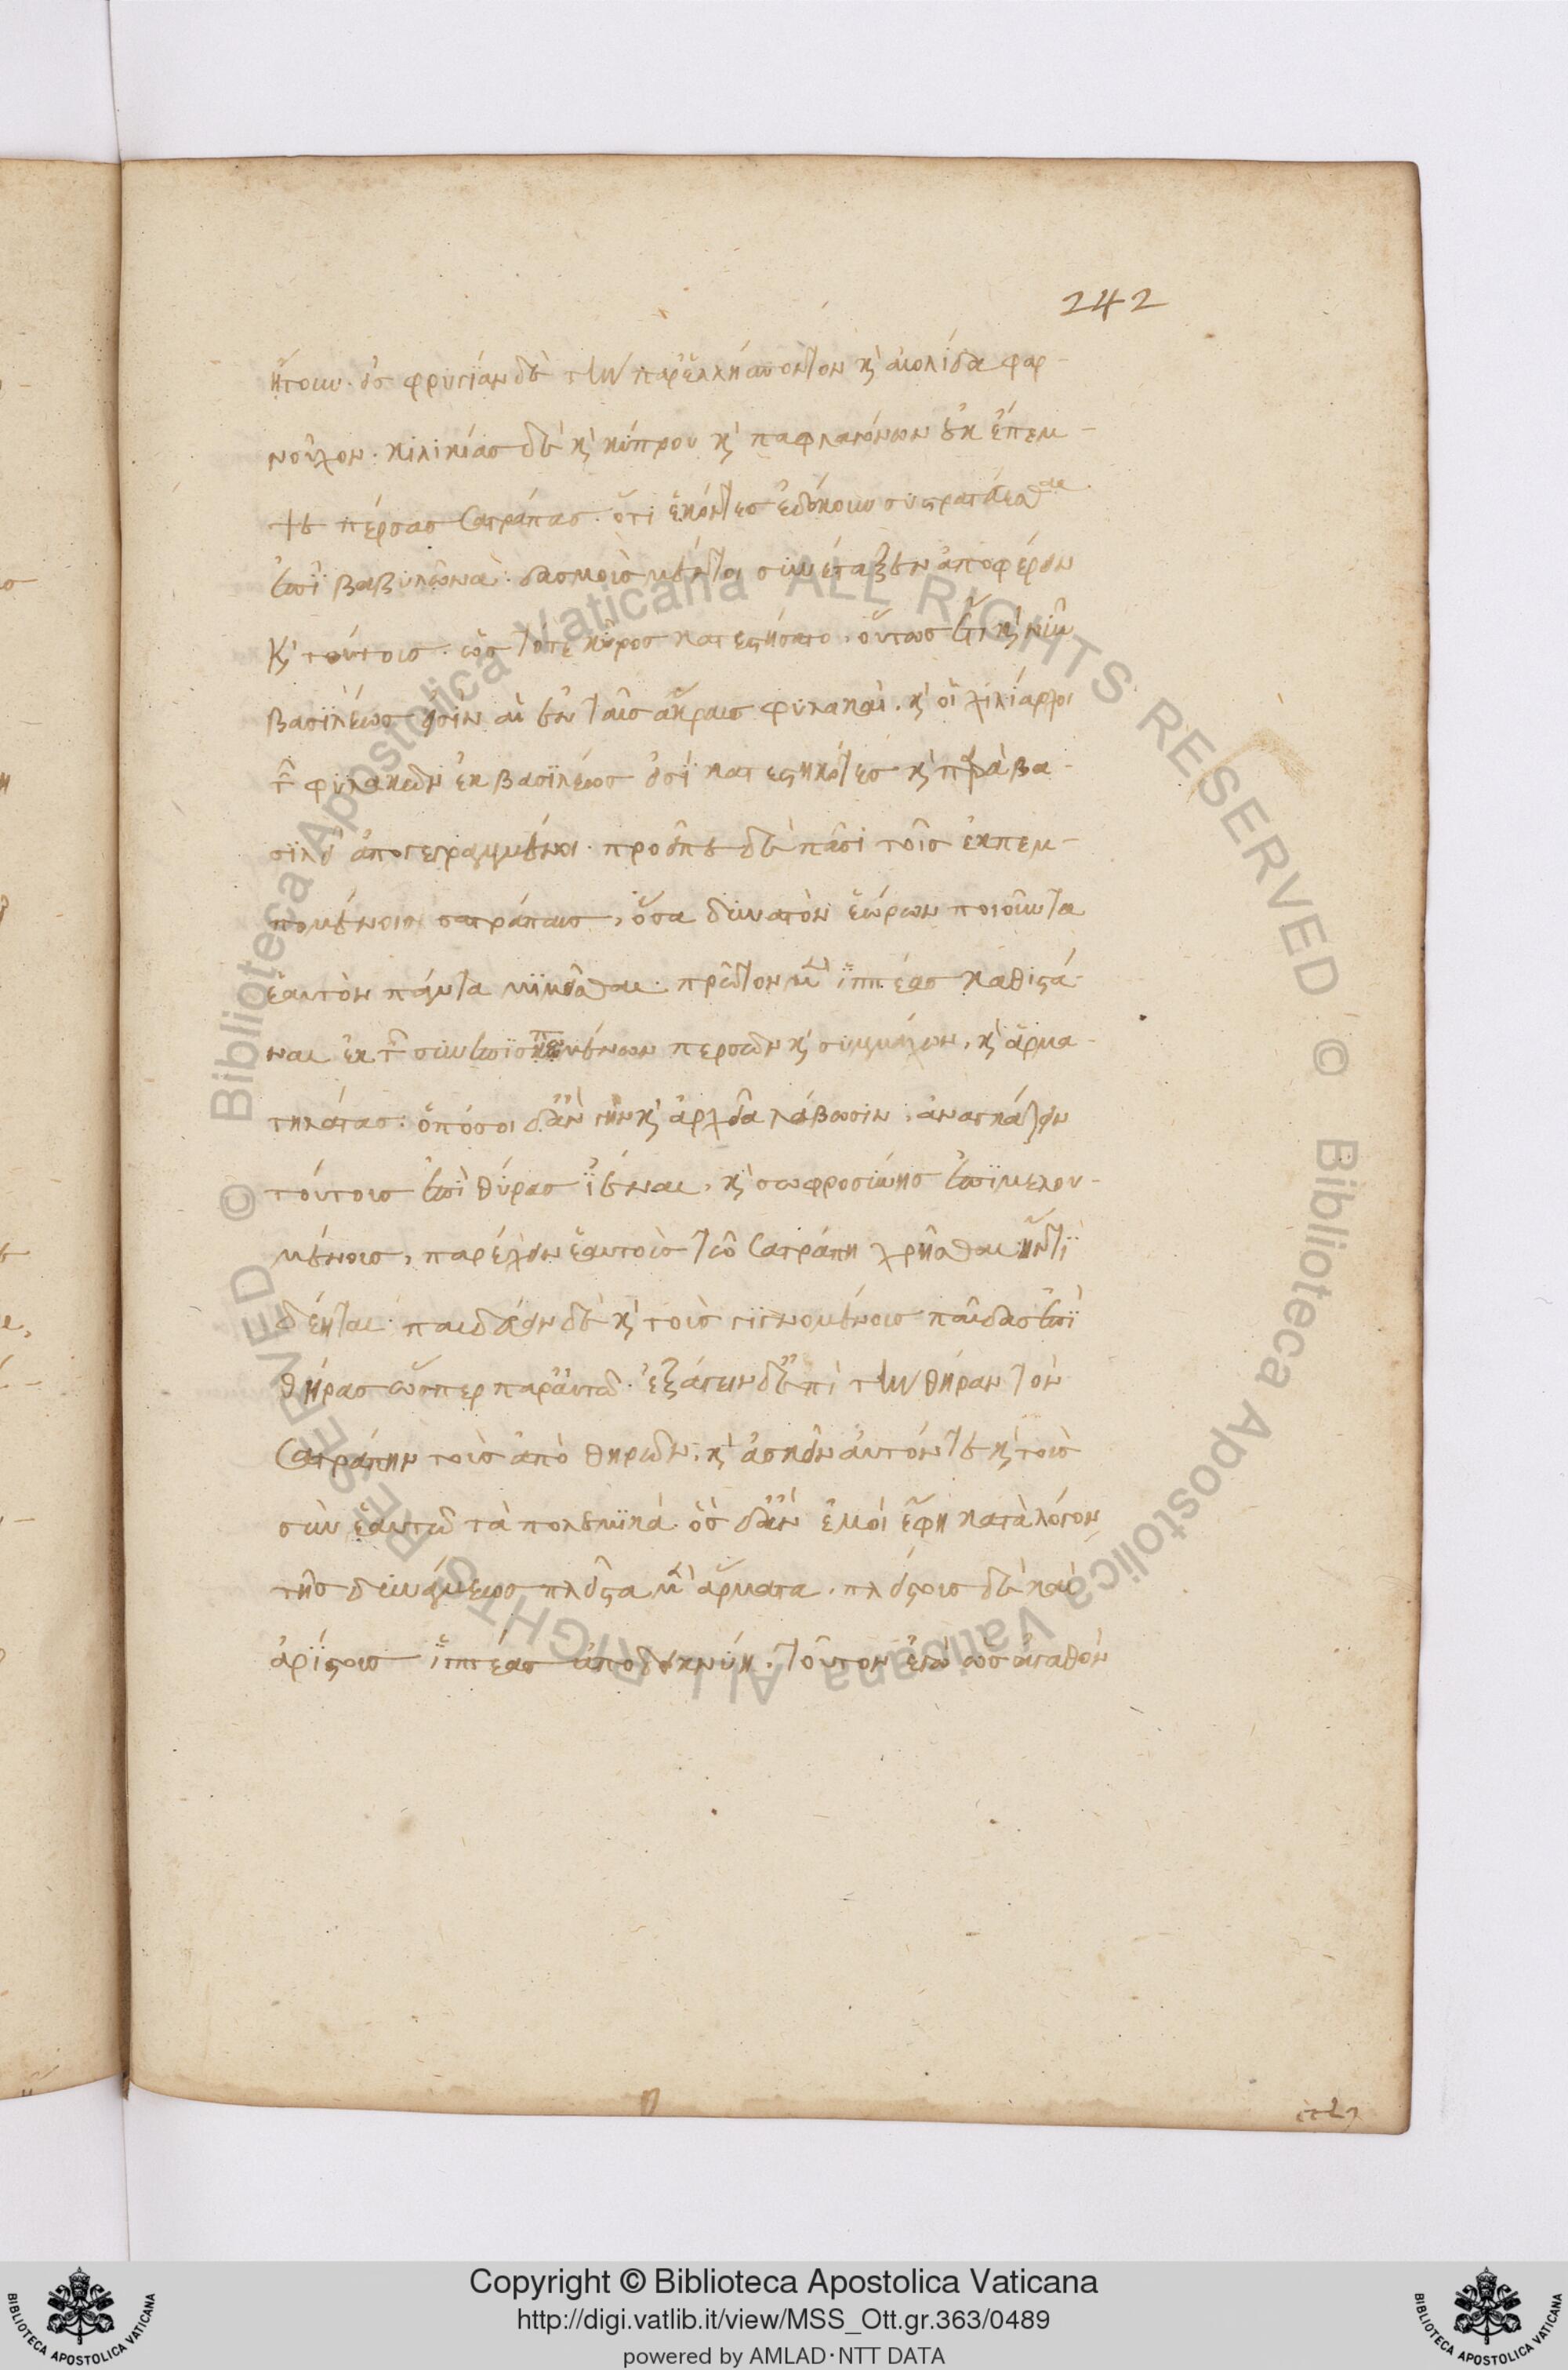 242
ᾔτουν. εἰς φρυγίαν δὲ τὴν παρ᾽ ἑλλήσποντον κ᾽ αἰολίδα φαρ-
νοῦχον. κιλικίας δὲ κ᾽ κύπρου κ᾽ παφλαγόνων οὐκ ἔπεμ-
ψε πέρσας σατράπας. ὅτι ἑκόντες ἐδόκουν συστρατεύεσθαι
ἐπὶ βαβυλῶνα. δασμοὺς μέντοι συνέταξεν ἀποφέρειν
κ᾽ τούτοις. ὡς τότε κῦρος κατεστήσατο, οὕτως ἔτι κ᾽ νῦν
βασιλέως εἰσὶν αἱ ἐν ταῖς ἄκραις φυλακαὶ, κ᾽ οἱ χιλίαρχοι
τῶν φυλακῶν ἐκ βασιλέως εἰσὶ κατεστηκότες κ᾽ παρὰ βα-
σιλεῖ ἀπογεγραμμένοι. προεῖπε δὲ πᾶσι τοῖς ἐκπεμ-
πομένοις σατράπαις, ὅσα δυνατὸν ἑώρων ποιοῦντα
ἑαυτὸν πάντα μιμεῖσθαι. πρῶτον μὲν ἱππέας καθιστά-
ναι ἐκ τῶν συνεπισπομένων περσῶν κ᾽ συμμάχων, κ᾽ ἁρμα-
τηλάτας. ὁπόσοι δ᾽ ἂν γῆν κ᾽ ἀρχεῖα λάβωσιν, ἀναγκάζειν
τούτους ἐπὶ θύρας ἰέναι, κ᾽ σωφροσύνης ἐπιμελου-
μένους, παρέχειν ἑαυτοὺς τῷ σατράπῃ χρῆσθαι ἤν τι
δέηται. παιδεύειν δὲ κ᾽ τοὺς γιγνομένους παῖδας ἐπὶ
θύρας ὥσπερ παρ᾽ αὐτῷ. ἐξάγειν δ᾽ ἐπὶ τὴν θήραν τὸν
σατράπην τοὺς ἀπὸ θυρῶν, κ᾽ ἀσκεῖν αὐτόν τε κ᾽ τοὺς
σὺν ἑαυτῷ τὰ πολεμικά. ὃς δ᾽ ἂν ἐμοί ἔφη κατὰ λόγον
τῆς δυνάμεως πλεῖστα μὲν ἅρματα, πλείστους δὲ καὶ
ἀρίστους ἱππέας ἀποδεικνύῃ, τοῦτον ἐγὼ ὡς ἀγαθὸν
Copyright © Biblioteca Apostolica Vaticana
http://digi.vatlib.it/view/MSS_Ott.gr.363/0489
powered by AMLAD·NTT DATA
BIBLIOTECA APOSTOLICA VATICANA
BIBLIOTECA APOSTOLICA VATICANA
© Biblioteca Apostolica Vaticana ALL RIGHTS RESERVED © Biblioteca Apostolica Vaticana ALL RIGHTS RESERVED